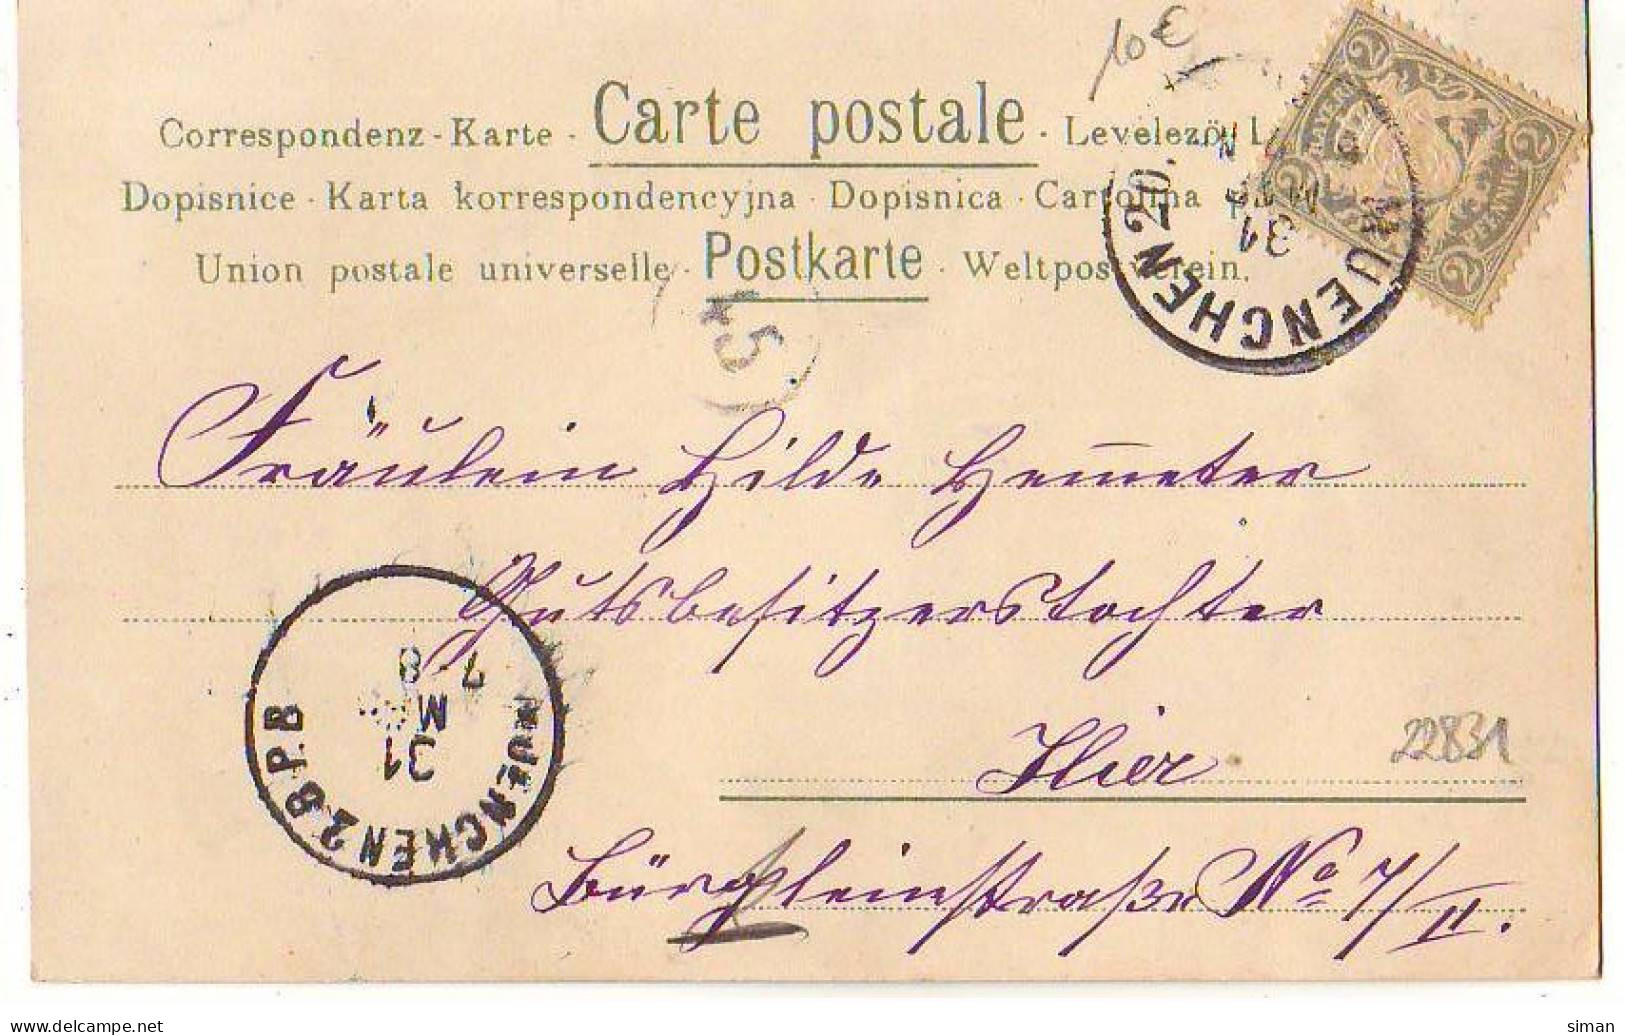 10 €
Correspondenz-Karte - Carte postale · Levelezö L
Dopisnice · Karta korrespondencyjna · Dopisnica · Cartolina p
Union postale universelle · Postkarte · Weltpostverein.
MUENCHEN 20.
31
BAYERN
2 PFENNIG 2
45
Fräulein Hilde Hem̅eter
Gutsbesitzerstochter
Hier
Bürkleinstraße No 7/II.
MUENCHEN 2 B.P.B
31
M
7-8
22831
siman
www.delcampe.net